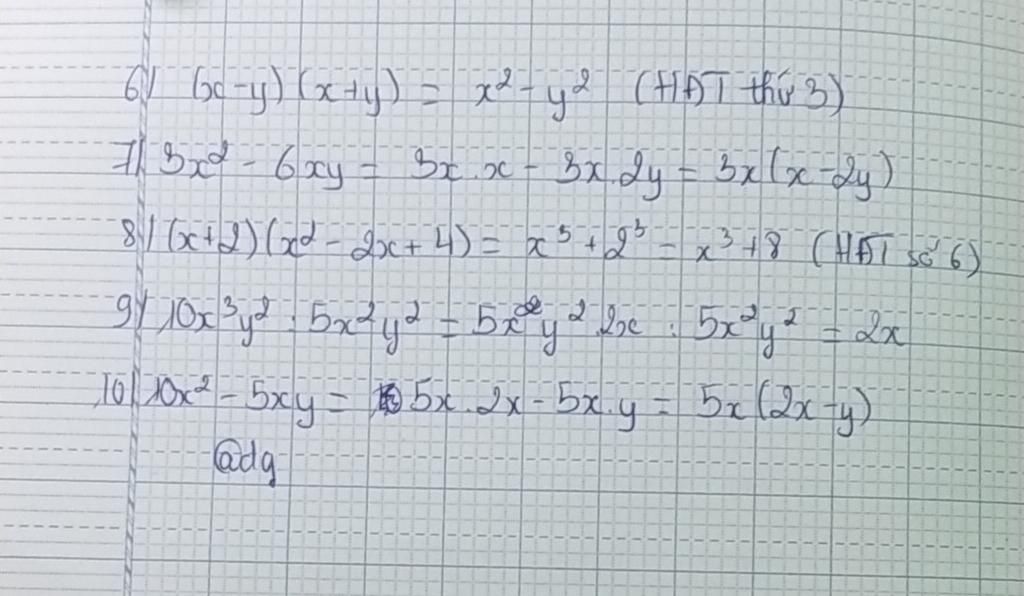 6) (x-y)(x+y) = x² - y² (HĐT thứ 3)
7) 3x² - 6xy = 3x.x - 3x.2y = 3x(x-2y)
8) (x+2)(x² - 2x + 4) = x³ + 2³ = x³ + 8 (HĐT số 6)
9) 10x³y² : 5x²y² = 5x²y².2x : 5x²y² = 2x
10) 10x² - 5xy = 5x.2x - 5x.y = 5x(2x-y)
@dg